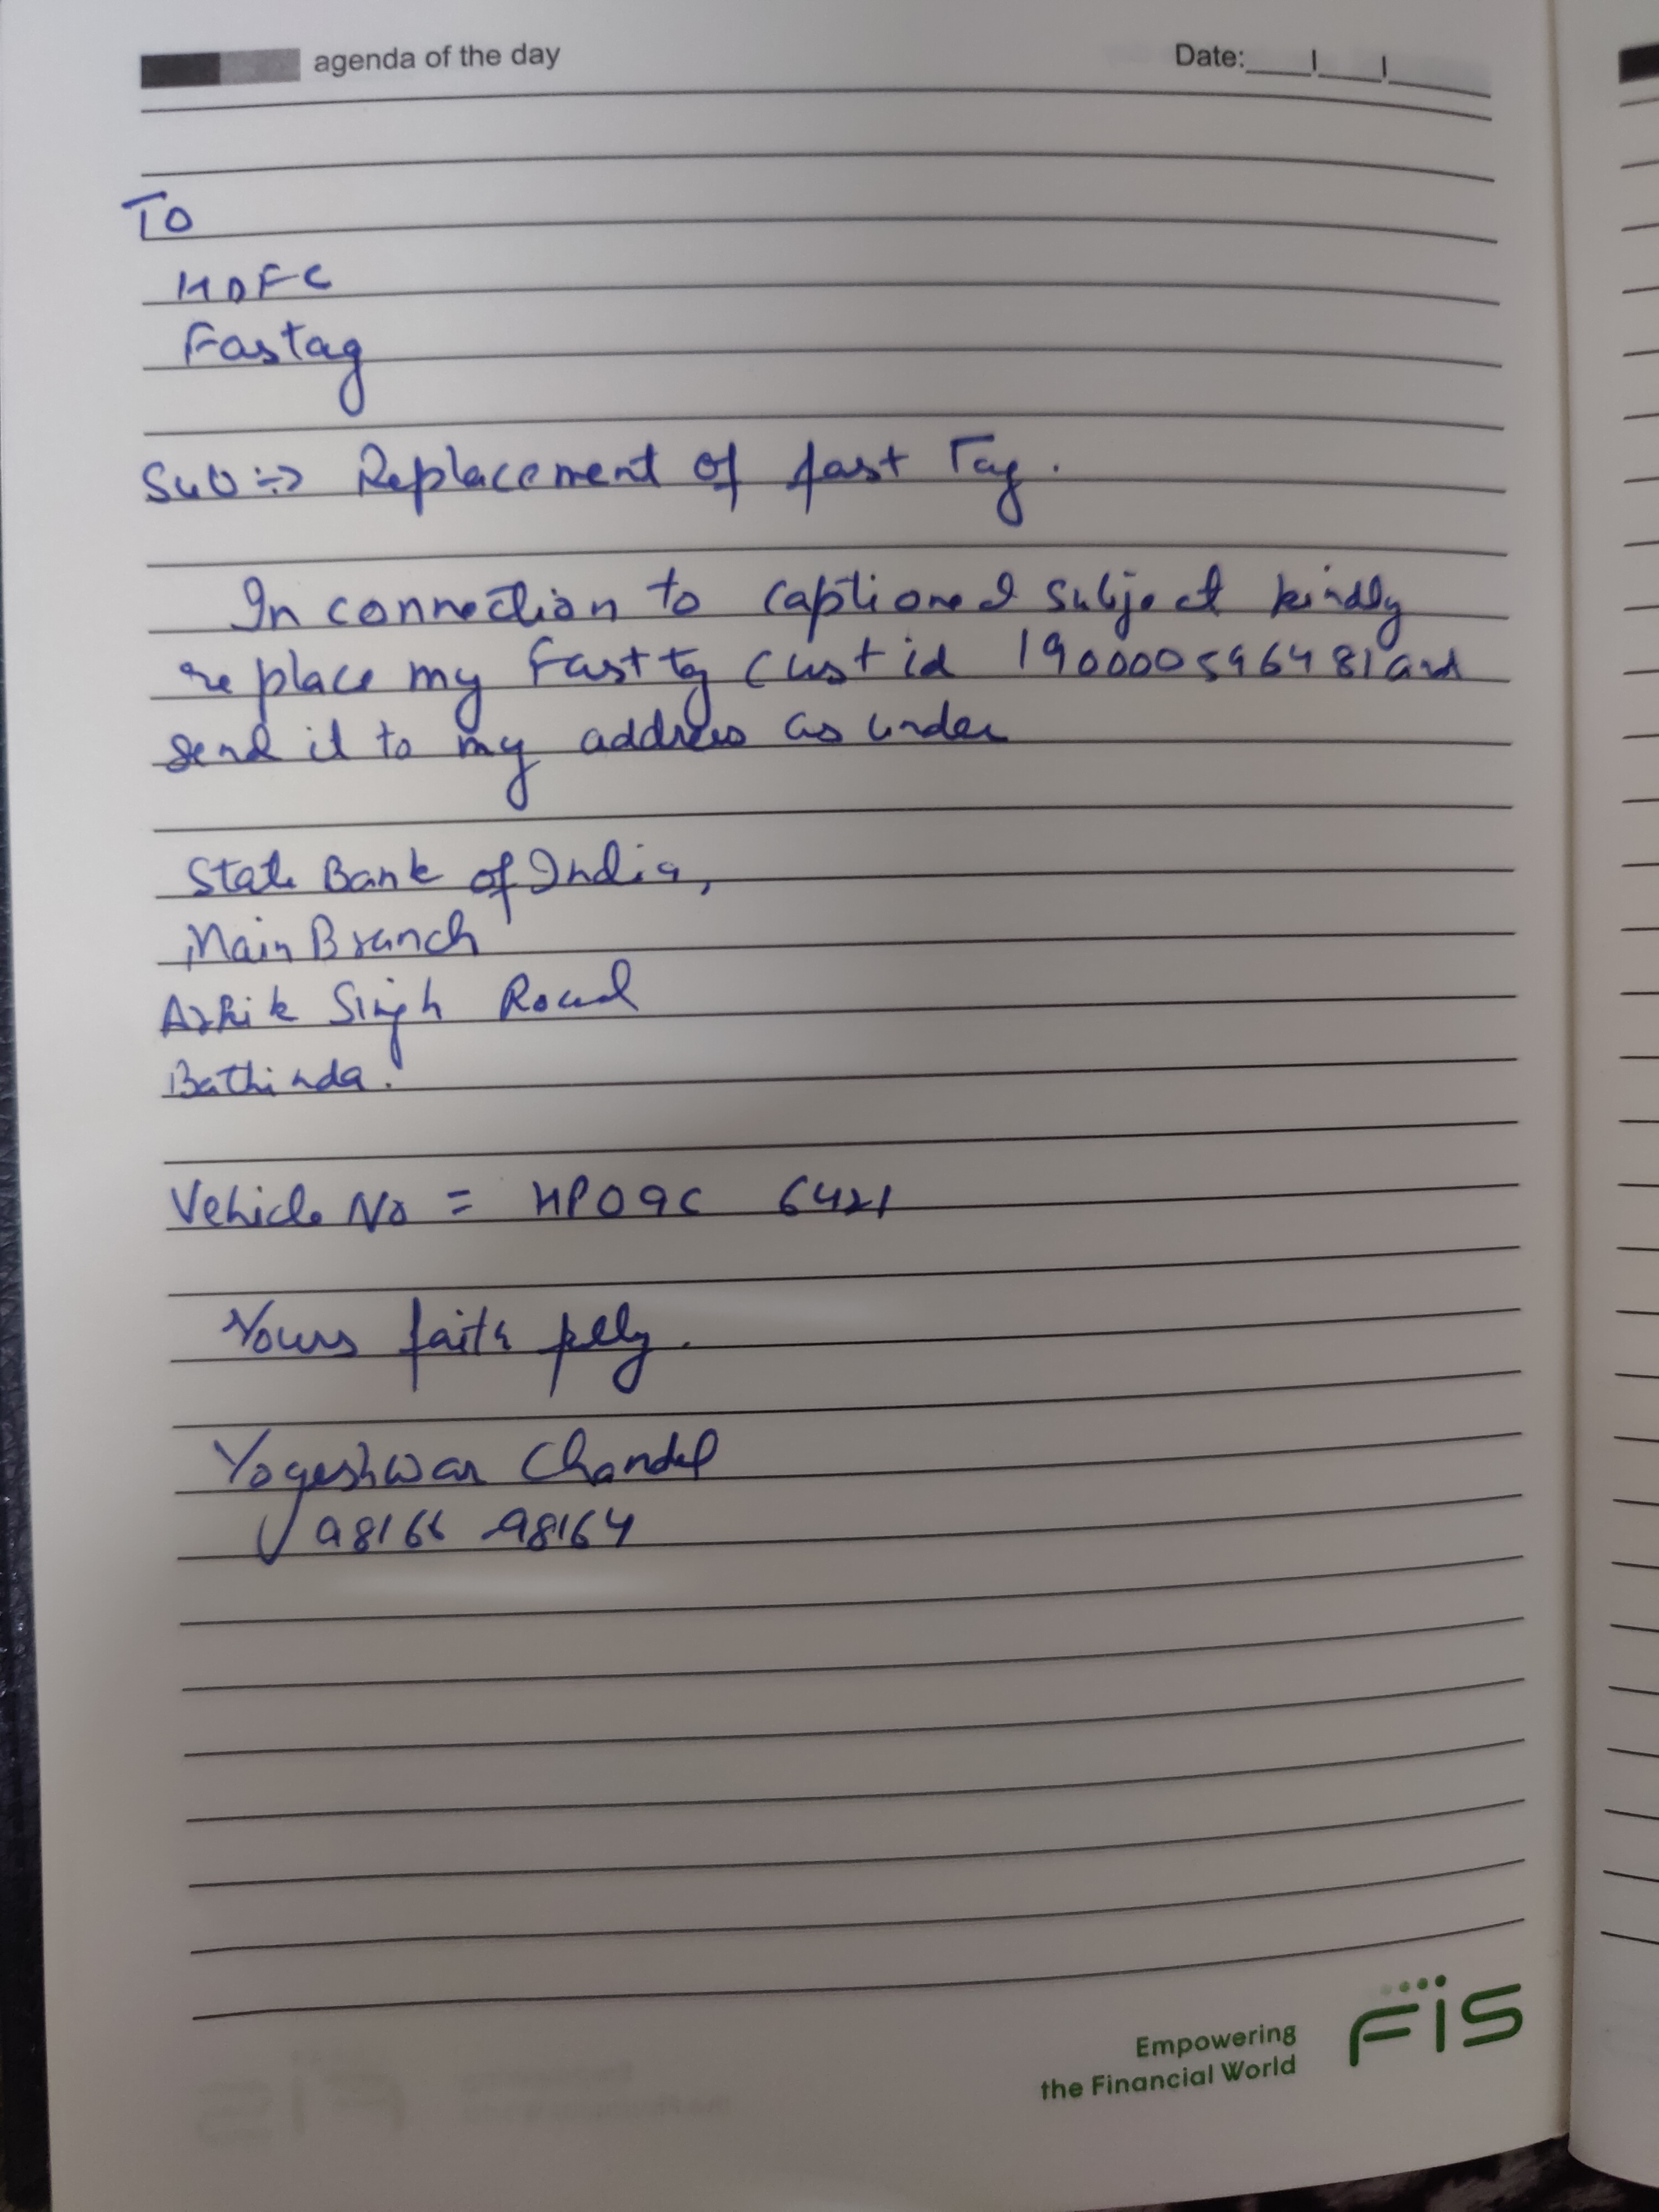 agenda of the day Date:____/____/____
To
HDFC
Fastag
Sub :-> Replacement of fast Tag.
In connection to captioned subject kindly
replace my Fast tg Cust id 190000596481 and
send it to my address as under
State Bank of India,
Main Branch
Singh Road
Bathinda.
Vehicle No = HP09C 6421
Yours faith fully.
Yogeshwar Chandel
98166 98164
Empowering
the Financial World
FIS